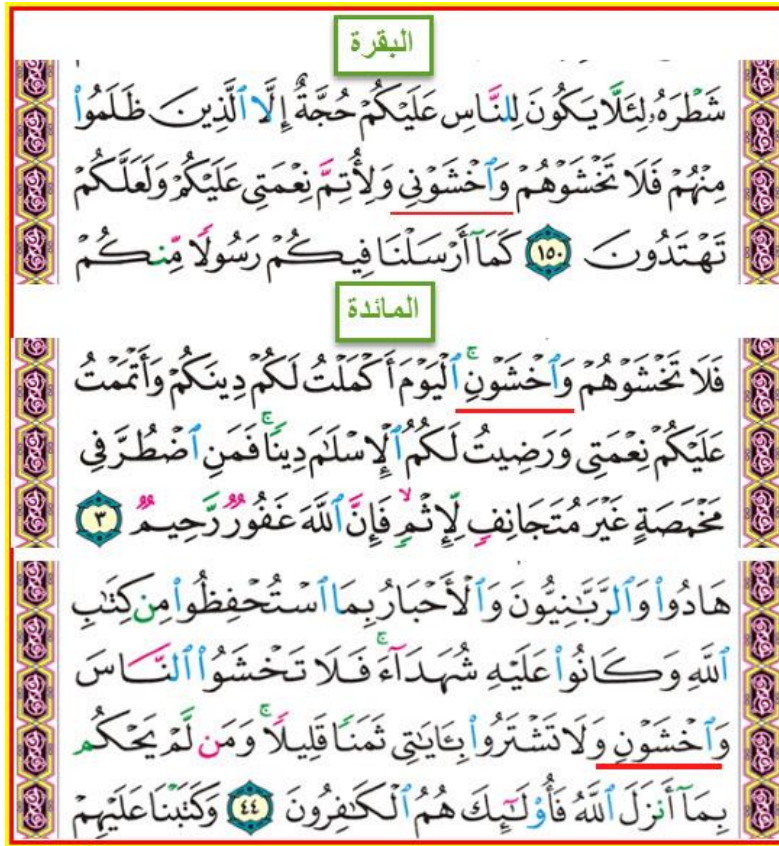 البقرة
شَطْرَهُۥ لِئَلَّا يَكُونَ لِلنَّاسِ عَلَيْكُمْ حُجَّةٌ إِلَّا ٱلَّذِينَ ظَلَمُوا۟
مِنْهُمْ فَلَا تَخْشَوْهُمْ وَٱخْشَوْنِى وَلِأُتِمَّ نِعْمَتِى عَلَيْكُمْ وَلَعَلَّكُمْ
تَهْتَدُونَ ١٥٠ كَمَآ أَرْسَلْنَا فِيكُمْ رَسُولًا مِّنكُمْ
المائدة
فَلَا تَخْشَوْهُمْ وَٱخْشَوْنِ ۚ ٱلْيَوْمَ أَكْمَلْتُ لَكُمْ دِينَكُمْ وَأَتْمَمْتُ
عَلَيْكُمْ نِعْمَتِى وَرَضِيتُ لَكُمُ ٱلْإِسْلَٰمَ دِينًا ۚ فَمَنِ ٱضْطُرَّ فِى
مَخْمَصَةٍ غَيْرَ مُتَجَانِفٍ لِّإِثْمٍ ۙ فَإِنَّ ٱللَّهَ غَفُورٌ رَّحِيمٌ ٣
هَادُوا۟ وَٱلرَّبَّٰنِيُّونَ وَٱلْأَحْبَارُ بِمَا ٱسْتُحْفِظُوا۟ مِن كِتَٰبِ
ٱللَّهِ وَكَانُوا۟ عَلَيْهِ شُهَدَآءَ ۚ فَلَا تَخْشَوُا۟ ٱلنَّاسَ
وَٱخْشَوْنِ وَلَا تَشْتَرُوا۟ بِـَٔايَٰتِى ثَمَنًا قَلِيلًا ۚ وَمَن لَّمْ يَحْكُم
بِمَآ أَنزَلَ ٱللَّهُ فَأُو۟لَٰٓئِكَ هُمُ ٱلْكَٰفِرُونَ ٤٤ وَكَتَبْنَا عَلَيْهِمْ